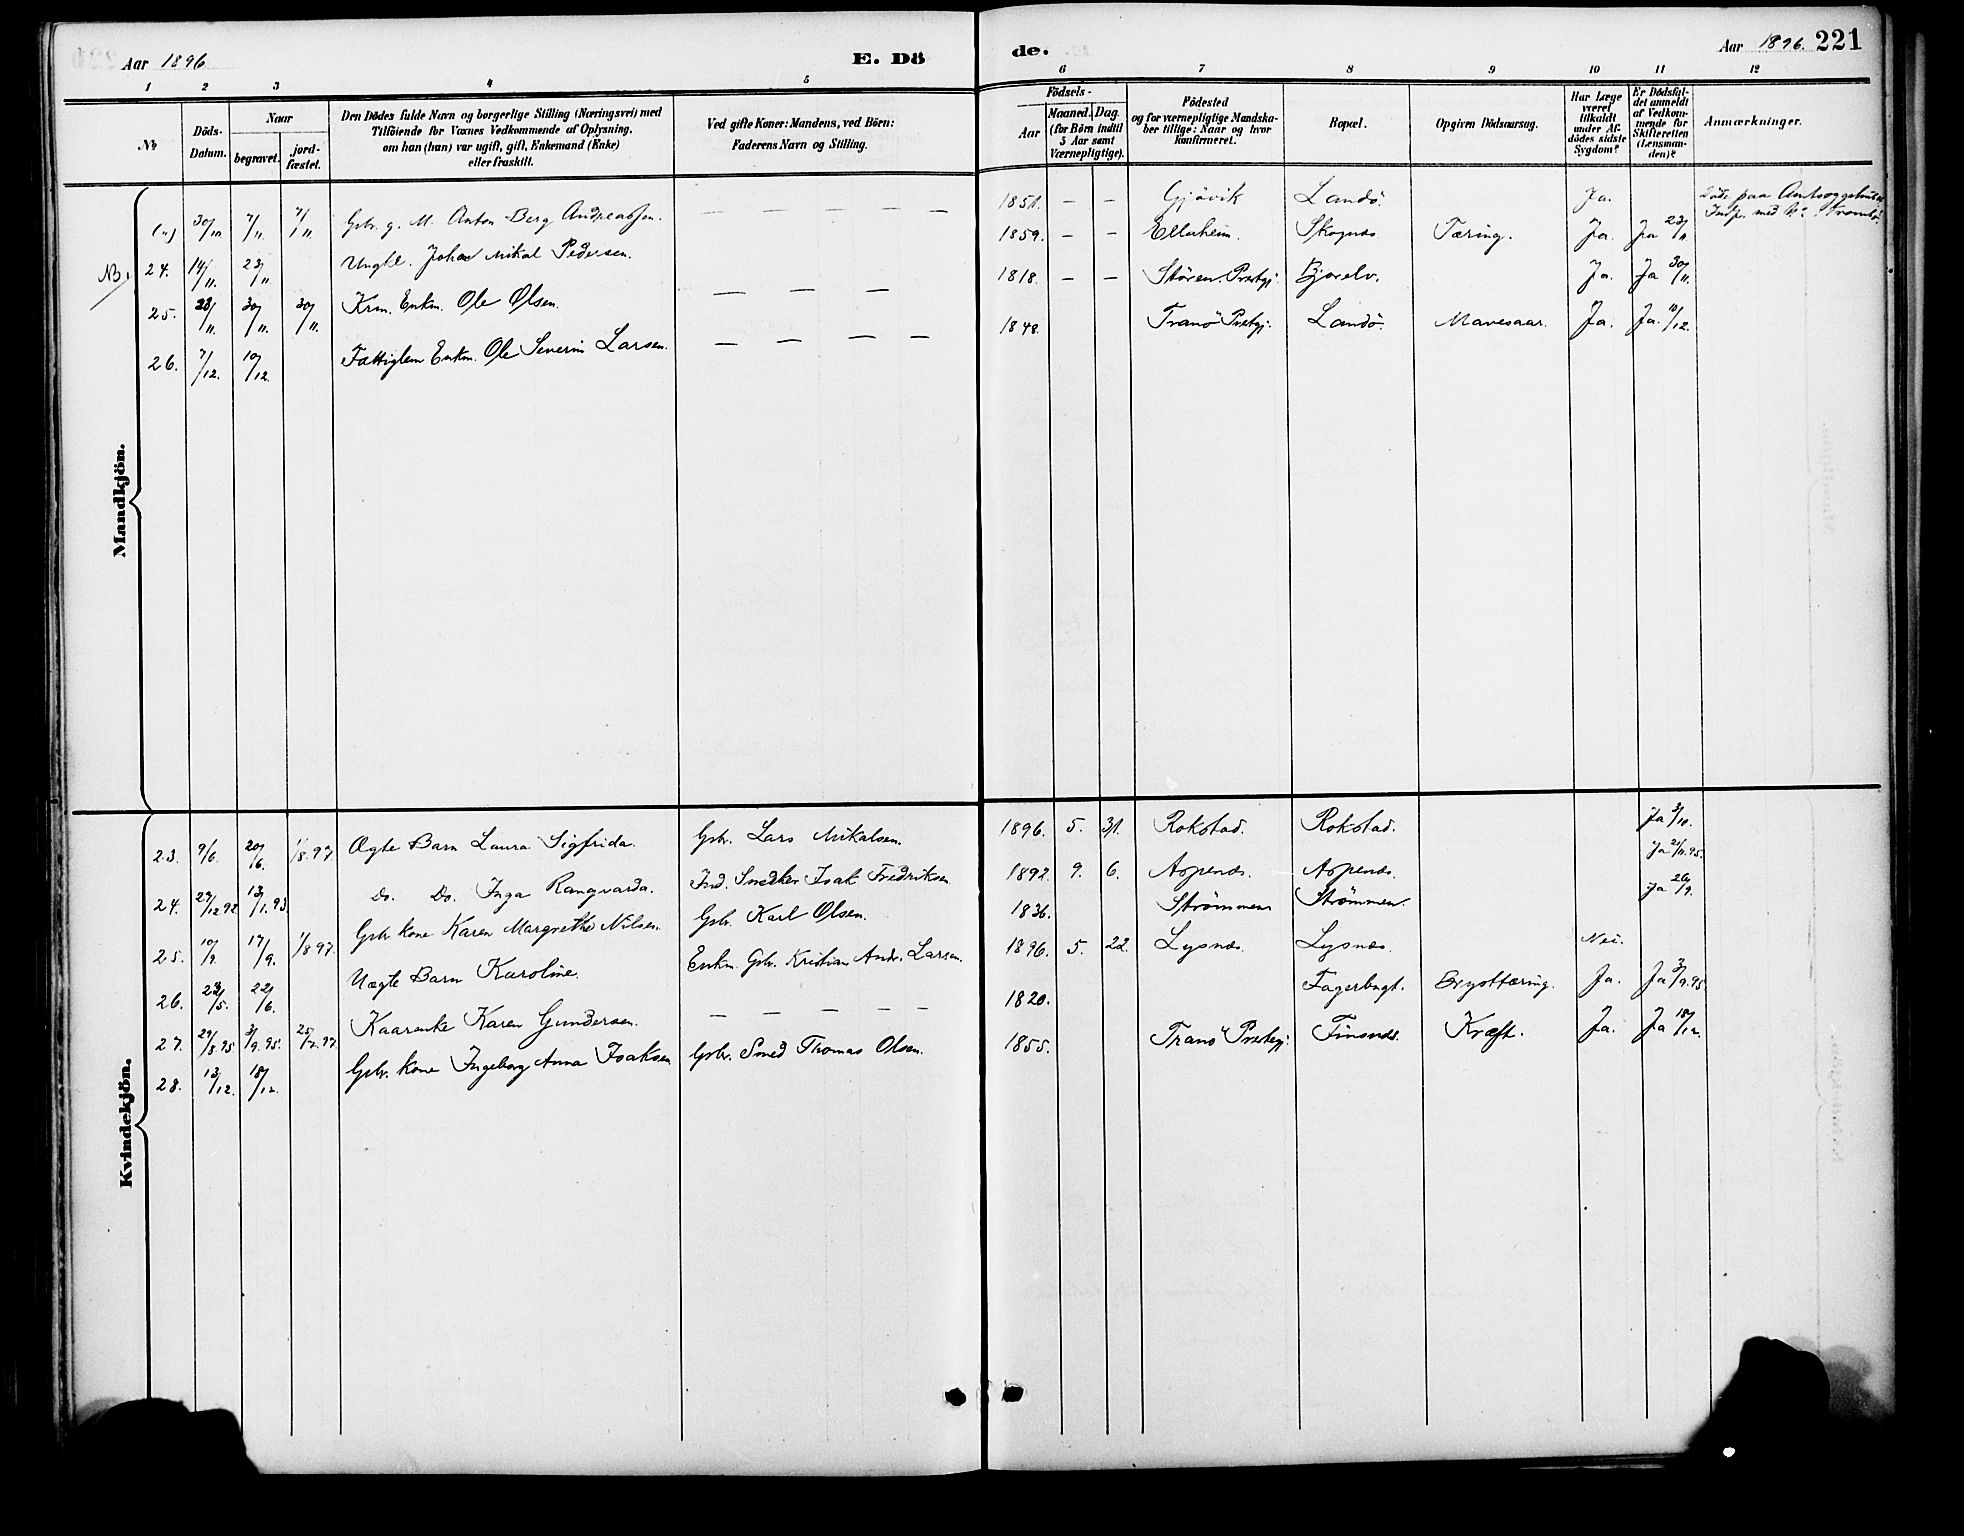 Aar 1896
E. Dö
de.
Aar 1896. 221
1 2 3 4 5 6 7 8 9 10 11 12
No
Döds-
Datum.
Naar
begravet.
jord-
fæstet.
Den Dödes fulde Navn og borgerlige Stilling (Næringsvei) med
Tilföiende for Voxnes Vedkommende af Oplysning,
om han (hun) var ugift, gift, Enkemand (Enke)
eller fraskilt.
Ved gifte Koner: Mandens, ved Börn:
Faderens Navn og Stilling.
Födsels-
Aar
Maaned. Dag.
(for Börn indtil
5 Aar samt
Værnepligtige).
Födested
og for værnepligtige Mandska-
ber tillige: Naar og hvor
konfirmeret.
Bopæl.
Opgiven Dödsaarsag.
Har Læge
været
tilkaldt
under Af-
dödes sidste
Sygdom?
Er Dödsfal-
det anmeldt
af Vedkom-
mende for
Skifteretten
(Lensman-
den)?
Anmærkninger.
Mandkjön.
(") 30/10 7/11. 7/11. Gbr. g. M. Anton Berg Andreassen. — — — — — 1851. — — Gjövik Landö. Ja. Döde paa Amtssygehuset
med
NB. 24. 14/11. 23/11 Ungkl. Johan Mikal Pedersen. 1859. — — Elleheim. Skognes Tæring. Ja. Ja 23/11
25. 23/11. 30/11. 30/11. Krm. Enkm. Ole Olsen. — — — 1818. — — Stören Prstgj. Bjorelv. Ja. Ja 30/11.
26. 7/12. 10/12. Fattiglem Enkm. Ole Severin Larsen. — — — — 1848. Tranö Prstgj. Landö. Mavesaar. Ja. Ja. 10/12.
Kvindekjön.
23. 9/6. 20/6. 1/8.97. Ægte Barn Laura Sigfrida. Gbr. Lars Mikalsen. 1896. 5. 31. Rokstad. Rokstad. Ja 3/10.
24. 29/12 92 13/1.93. Do. Do. Inga Rangvarda. Ind. Snedker Isak Fredriksen 1892. 9. 6. Aspenes. Aspenes. Ja 21/11.95.
25. 10/9. 17/9. 1/8 97. Gbr. kone Karen Margrethe Nilsen. Gbr. Karl Olsen. 1836. Strömmen Strömmen. Ja 26/9.
26. 23/5. 22/6. Uægte Barn Karoline. Enkm. Gbr. Kristian Andr. Larsen. 1896. 5. 22. Lysnes. Lysnes. Nei.
27. 29/8.95 3/9.95. 25/7.97. Kaarenke Karen Gundersen. — — — — — 1820. Fagerbugt. Brysttæring. Ja. Ja 3/9.95.
28. 13/12. 18/12. Gbr. kone Ingeborg Anna Isaksen Gbr. Smed Thomas Olsen. 1855. Tranö Prstgj. Finsnes. Kræft. Ja. Ja 18/12.